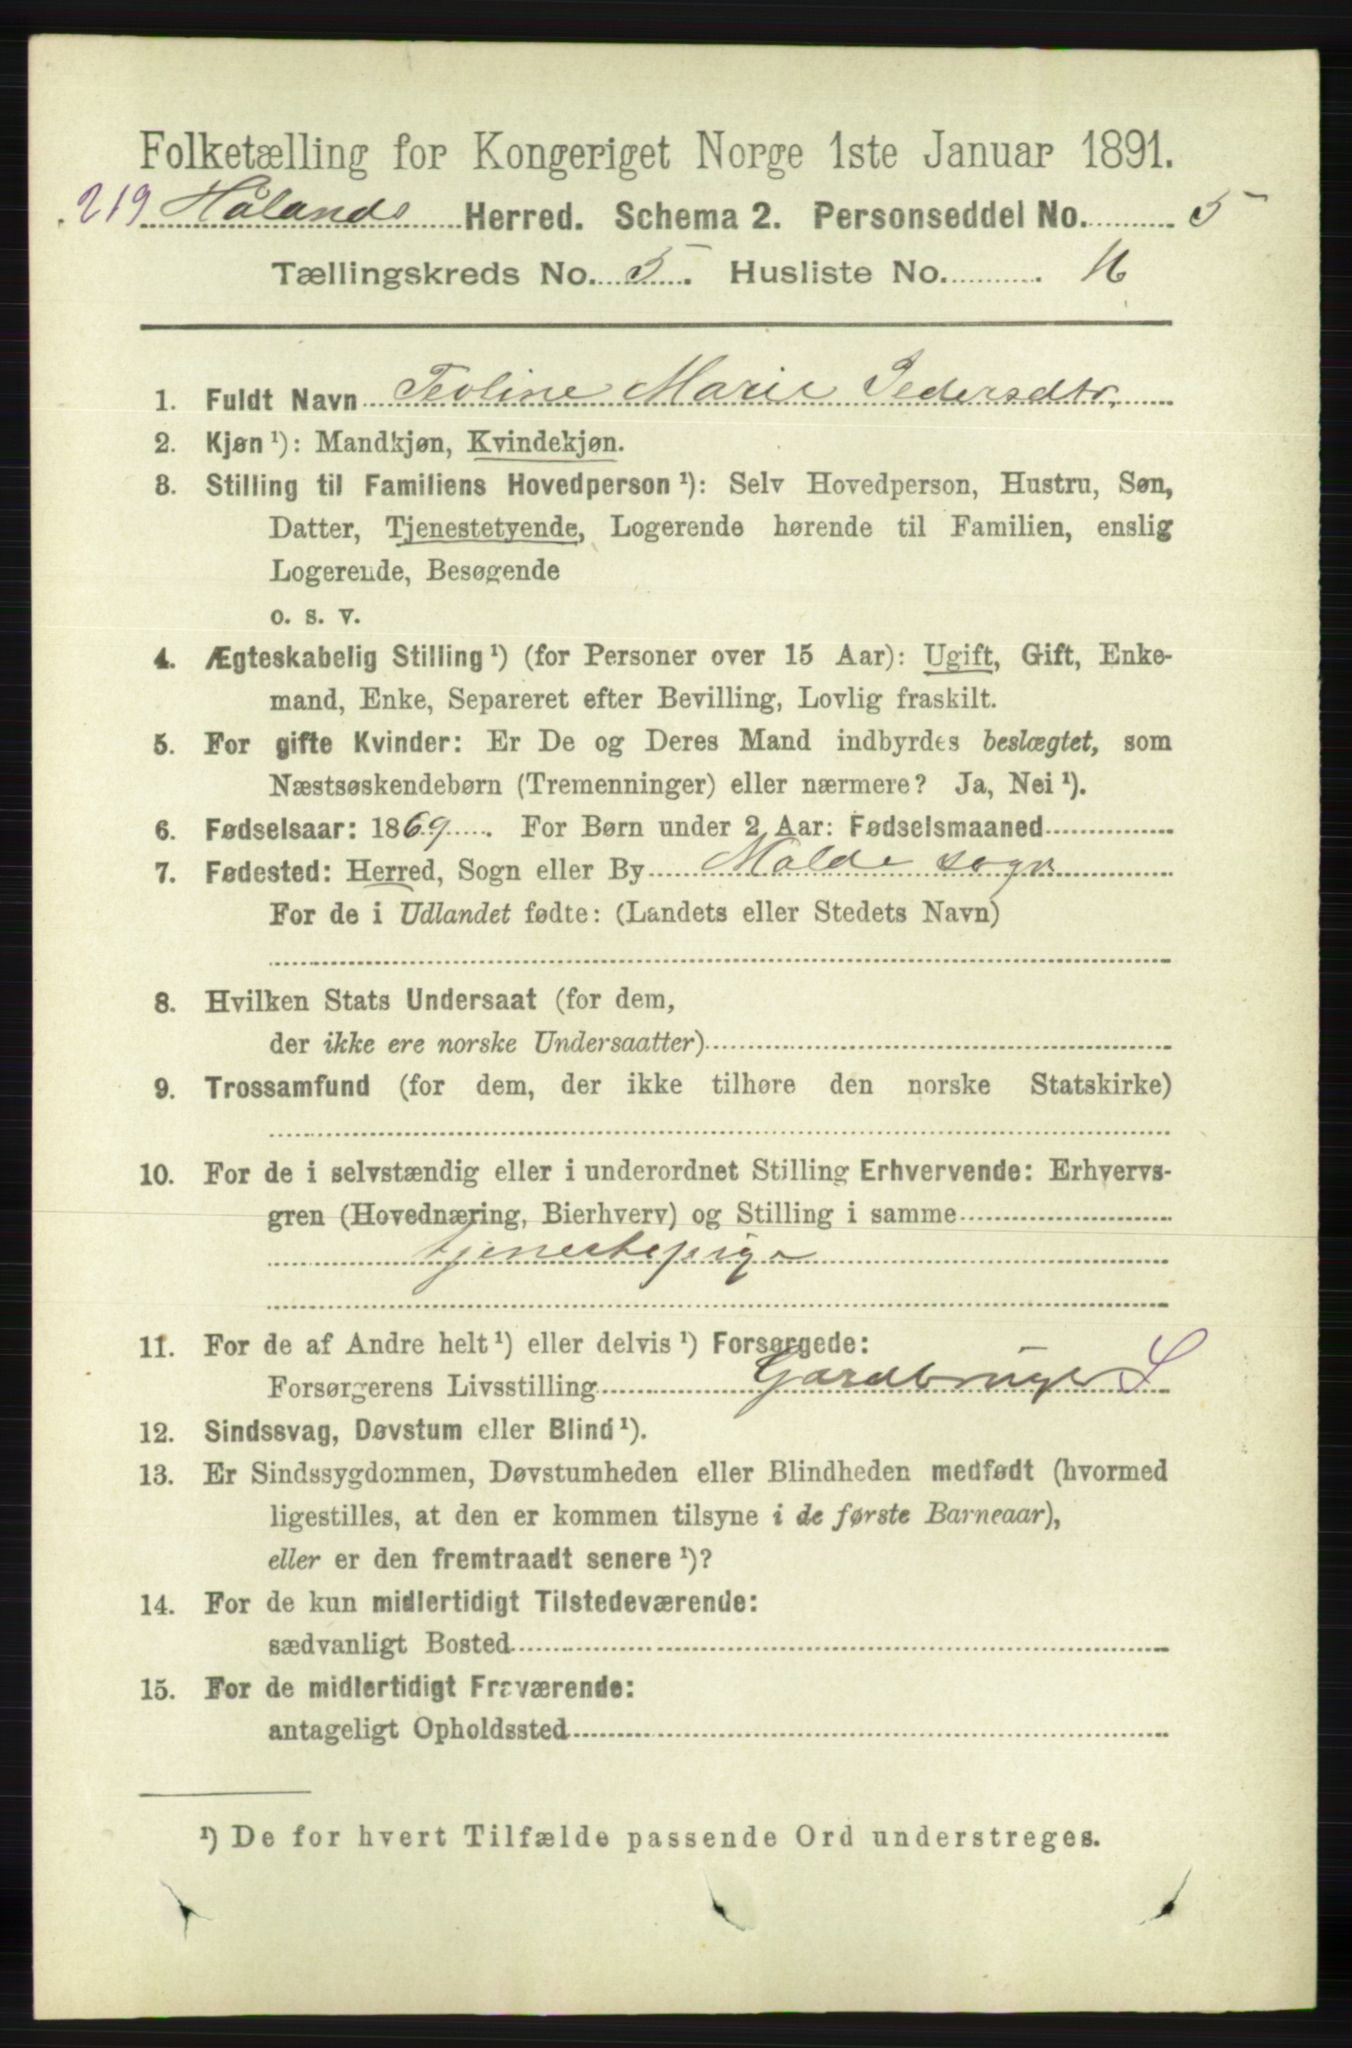 Folketælling for Kongeriget Norge 1ste Januar 1891.
219 Hålands Herred. Schema 2. Personseddel No. 5
Tællingskreds No. 5. Husliste No. 16
1. Fuldt Navn Teoline Marie Pedersdtr.
2. Kjøn ¹): Mandkjøn, Kvindekjøn.
3. Stilling til Familiens Hovedperson ¹): Selv Hovedperson, Hustru, Søn,
Datter, Tjenestetyende, Logerende hørende til Familien, enslig
Logerende, Besøgende
o. s. v.
4. Ægteskabelig Stilling ¹) (for Personer over 15 Aar): Ugift, Gift, Enke-
mand, Enke, Separeret efter Bevilling, Lovlig fraskilt.
5. For gifte Kvinder: Er De og Deres Mand indbyrdes beslægtet, som
Næstsøskendebørn (Tremenninger) eller nærmere? Ja, Nei ¹).
6. Fødselsaar: 1869. For Børn under 2 Aar: Fødselsmaaned
7. Fødested: Herred, Sogn eller By Molde sogn
For de i Udlandet fødte: (Landets eller Stedets Navn)
8. Hvilken Stats Undersaat (for dem,
der ikke ere norske Undersaatter)
9. Trossamfund (for dem, der ikke tilhøre den norske Statskirke)
10. For de i selvstændig eller i underordnet Stilling Erhvervende: Erhvervs-
gren (Hovednæring, Bierhverv) og Stilling i samme
tjenestepige
11. For de af Andre helt ¹) eller delvis ¹) Forsørgede:
Forsørgerens Livsstilling Gardbruger S
12. Sindssvag, Døvstum eller Blind ¹).
13. Er Sindssygdommen, Døvstumheden eller Blindheden medfødt (hvormed
ligestilles, at den er kommen tilsyne i de første Barneaar),
eller er den fremtraadt senere ¹)?
14. For de kun midlertidigt Tilstedeværende:
sædvanligt Bosted
15. For de midlertidigt Fraværende:
antageligt Opholdssted
¹) De for hvert Tilfælde passende Ord understreges.